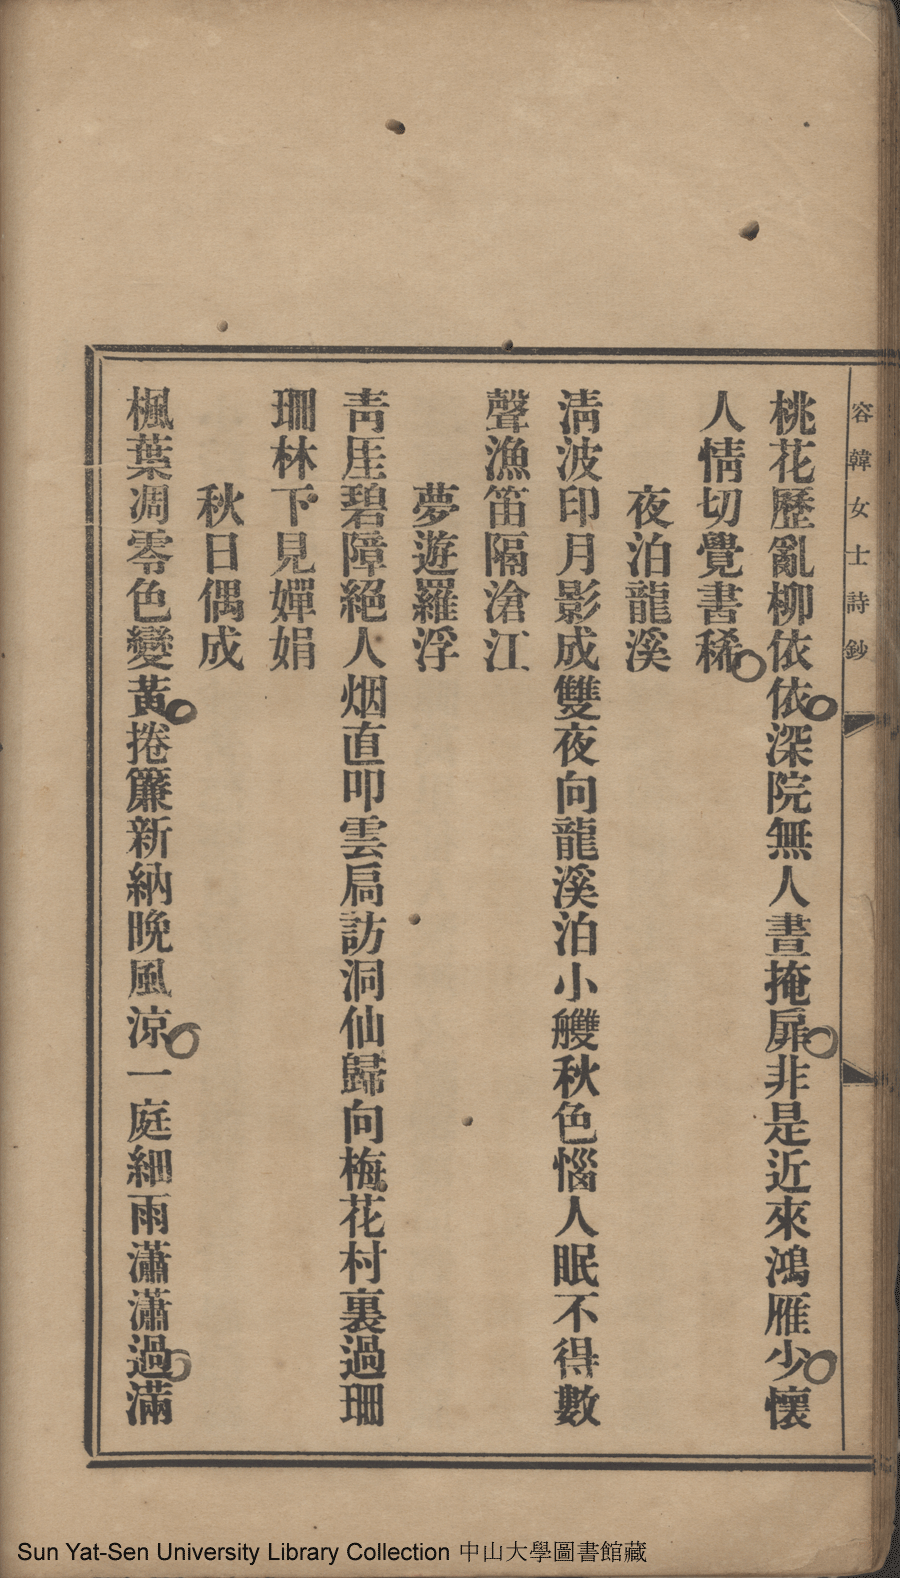 容韓女士詩鈔
桃花歷亂柳依依深院無人晝掩扉非是近來鴻雁少懷
人情切覺書稀
夜泊龍溪
淸波印月影成雙夜向龍溪泊小艭秋色惱人眠不得數
聲漁笛隔滄江
夢遊羅浮
靑厓碧障絕人烟直叩雲扃訪洞仙歸向梅花村裏過珊
珊林下見嬋娟
秋日偶成
楓葉凋零色變黃捲簾新納晚風涼一庭細雨瀟瀟過滿
Sun Yat-Sen University Library Collection 中山大學圖書館藏